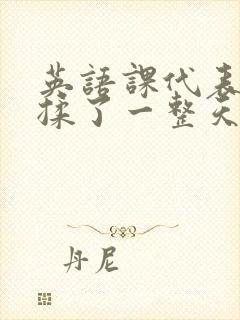 英語課代表
揉了一整天
丹尼